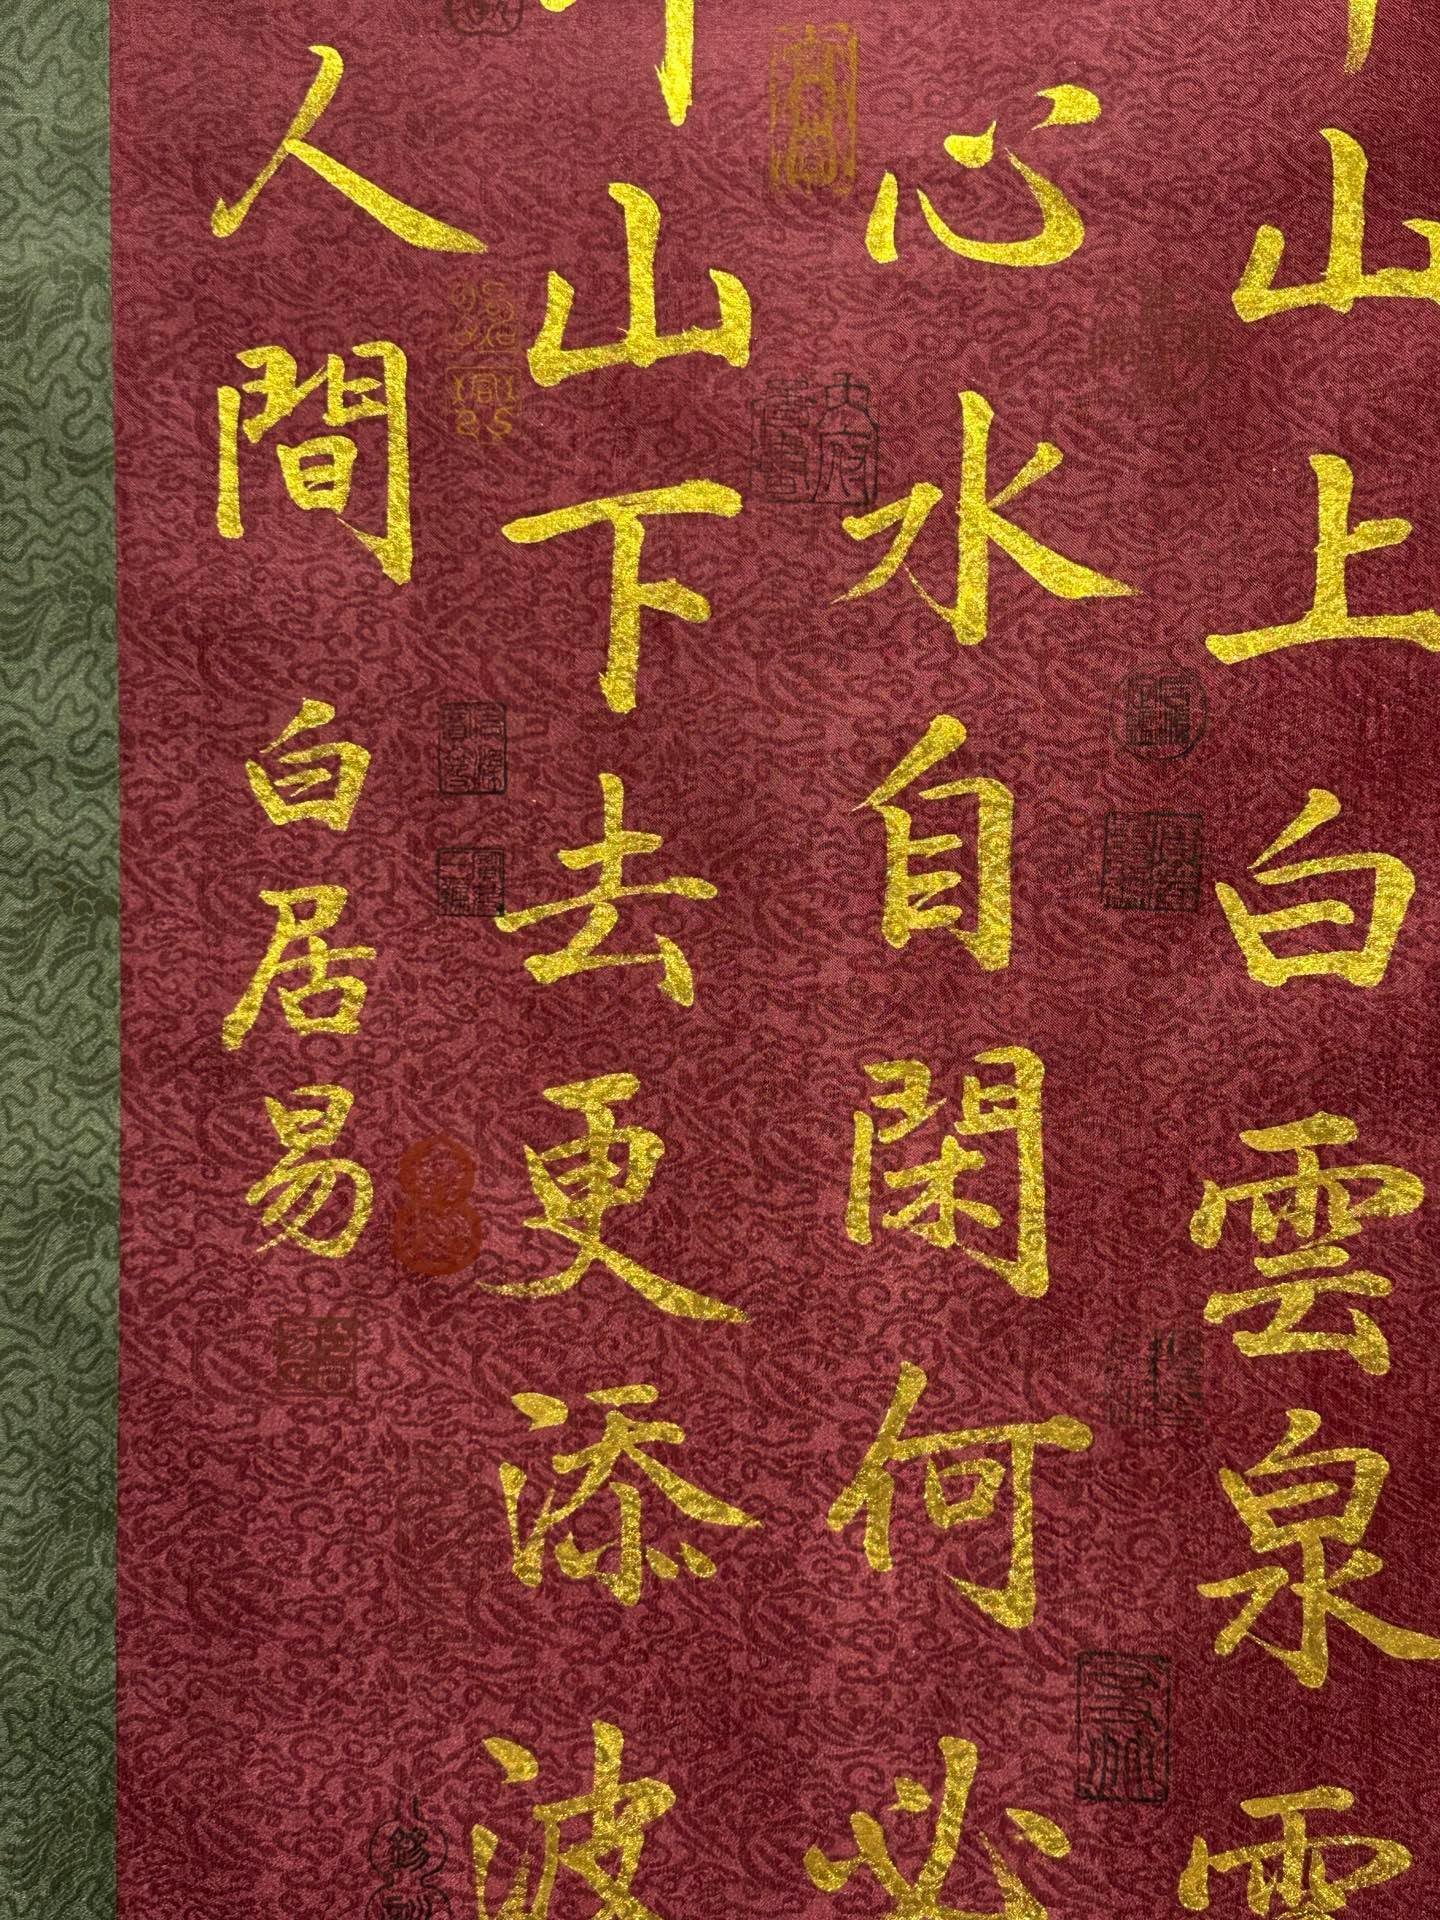 山上白雲泉雲
心水自閑何必
山下去更添波
人間 白居易